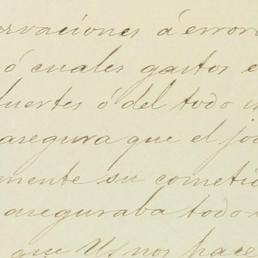 ervaciones á errore
ó cuales gastos e
uertes ó del todo in
asegura que el jo
mente su cometid
aseguraba todo
que Us nos hace